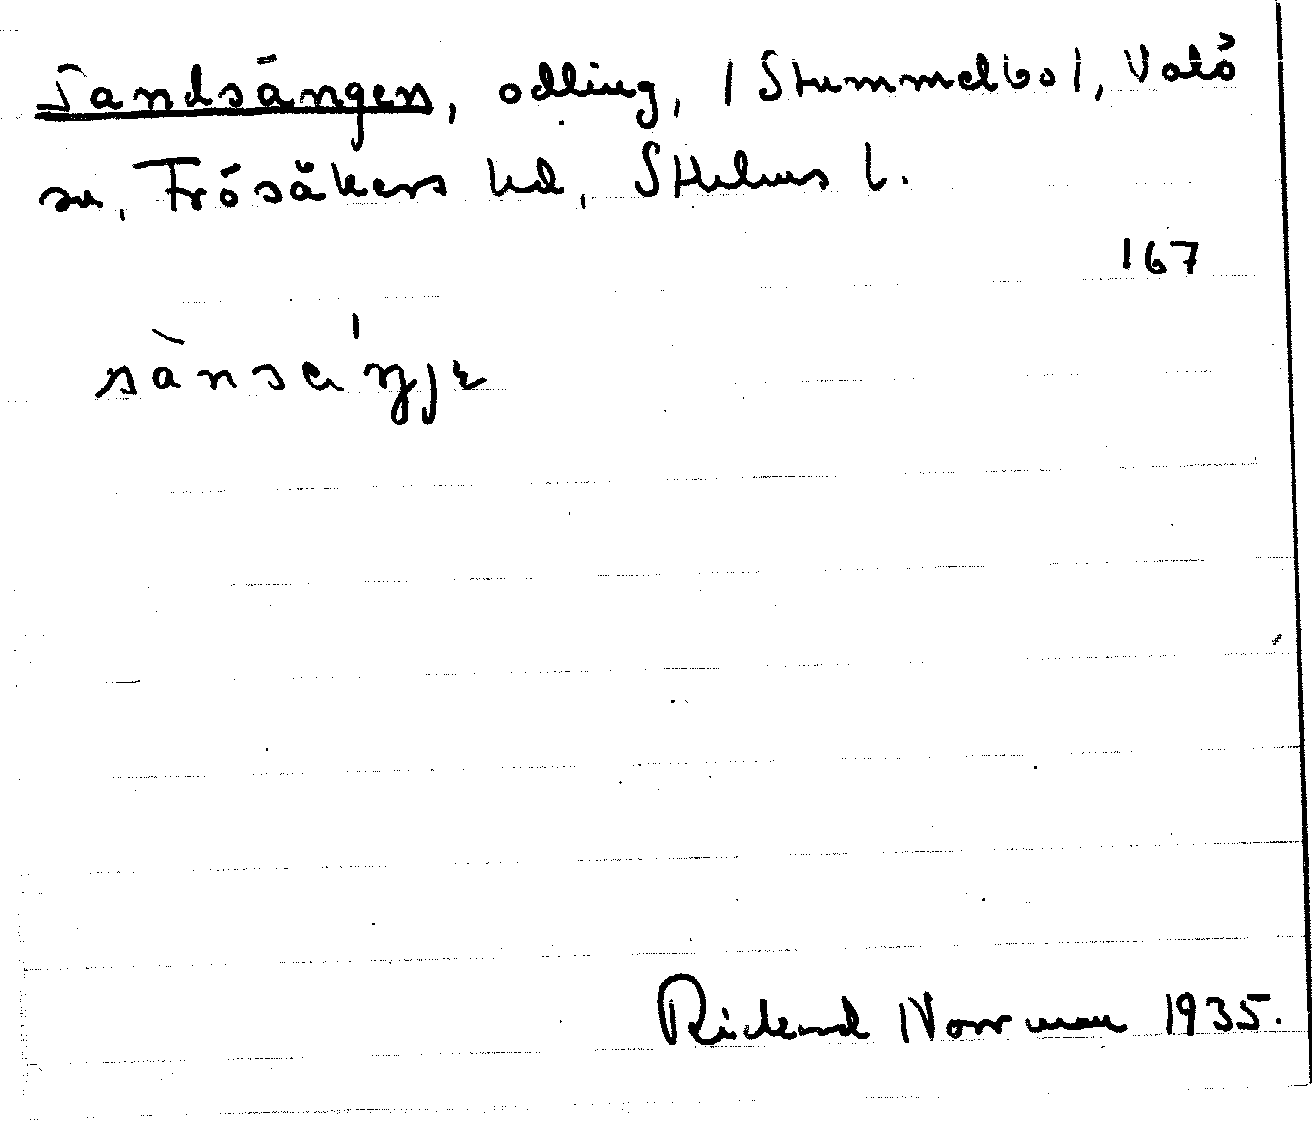 Sandsängen, odling, /Stummelbo/, Valö
sn, Frösåkers hd, Sthlms l.
167
sànsǽŋjɛ
Rickard Norrman 1935.